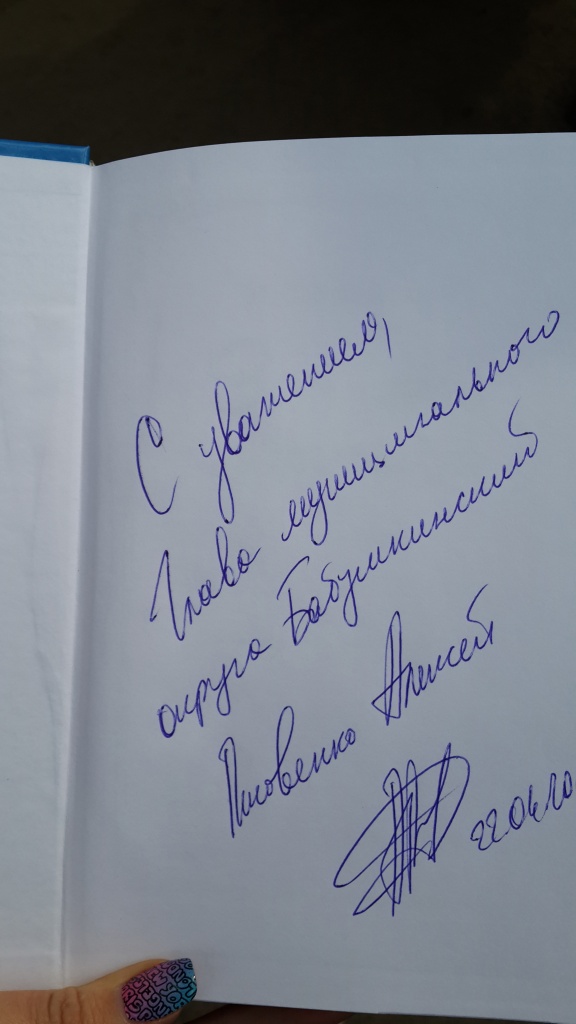 С уважением,
Глава муниципального
округа Бабушкинский
Лисовенко Алексей
22.04.20